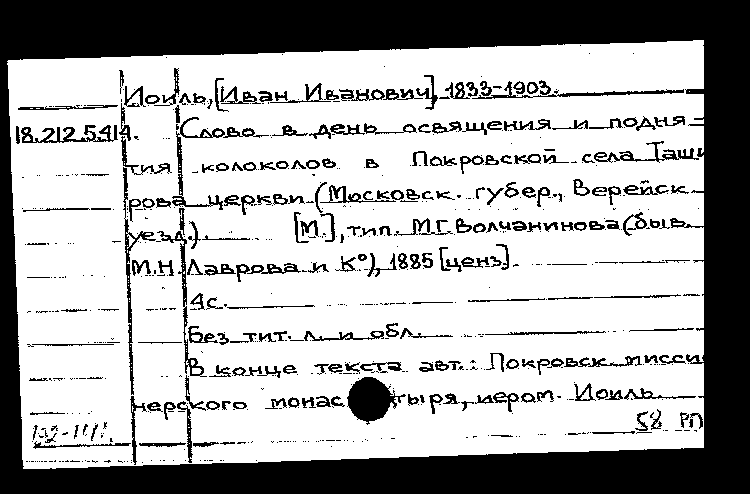 Иоиль, [Иван Иванович], 1833-1903.
18.212.5.414. Слово в день освящения и подня-
тия колоколов в Покровской села Таши
рова церкви (Московск. губер., Верейск.
уезд.). [М.], тип. М.Г. Волчанинова (быв.
М.Н. Лаврова и К°), 1885 [ценз].
4с.
Без тит. л. и обл.
В конце текста авт.: Покровск. мисси
нерского монас тыря, иером. Иоиль.
58 РП